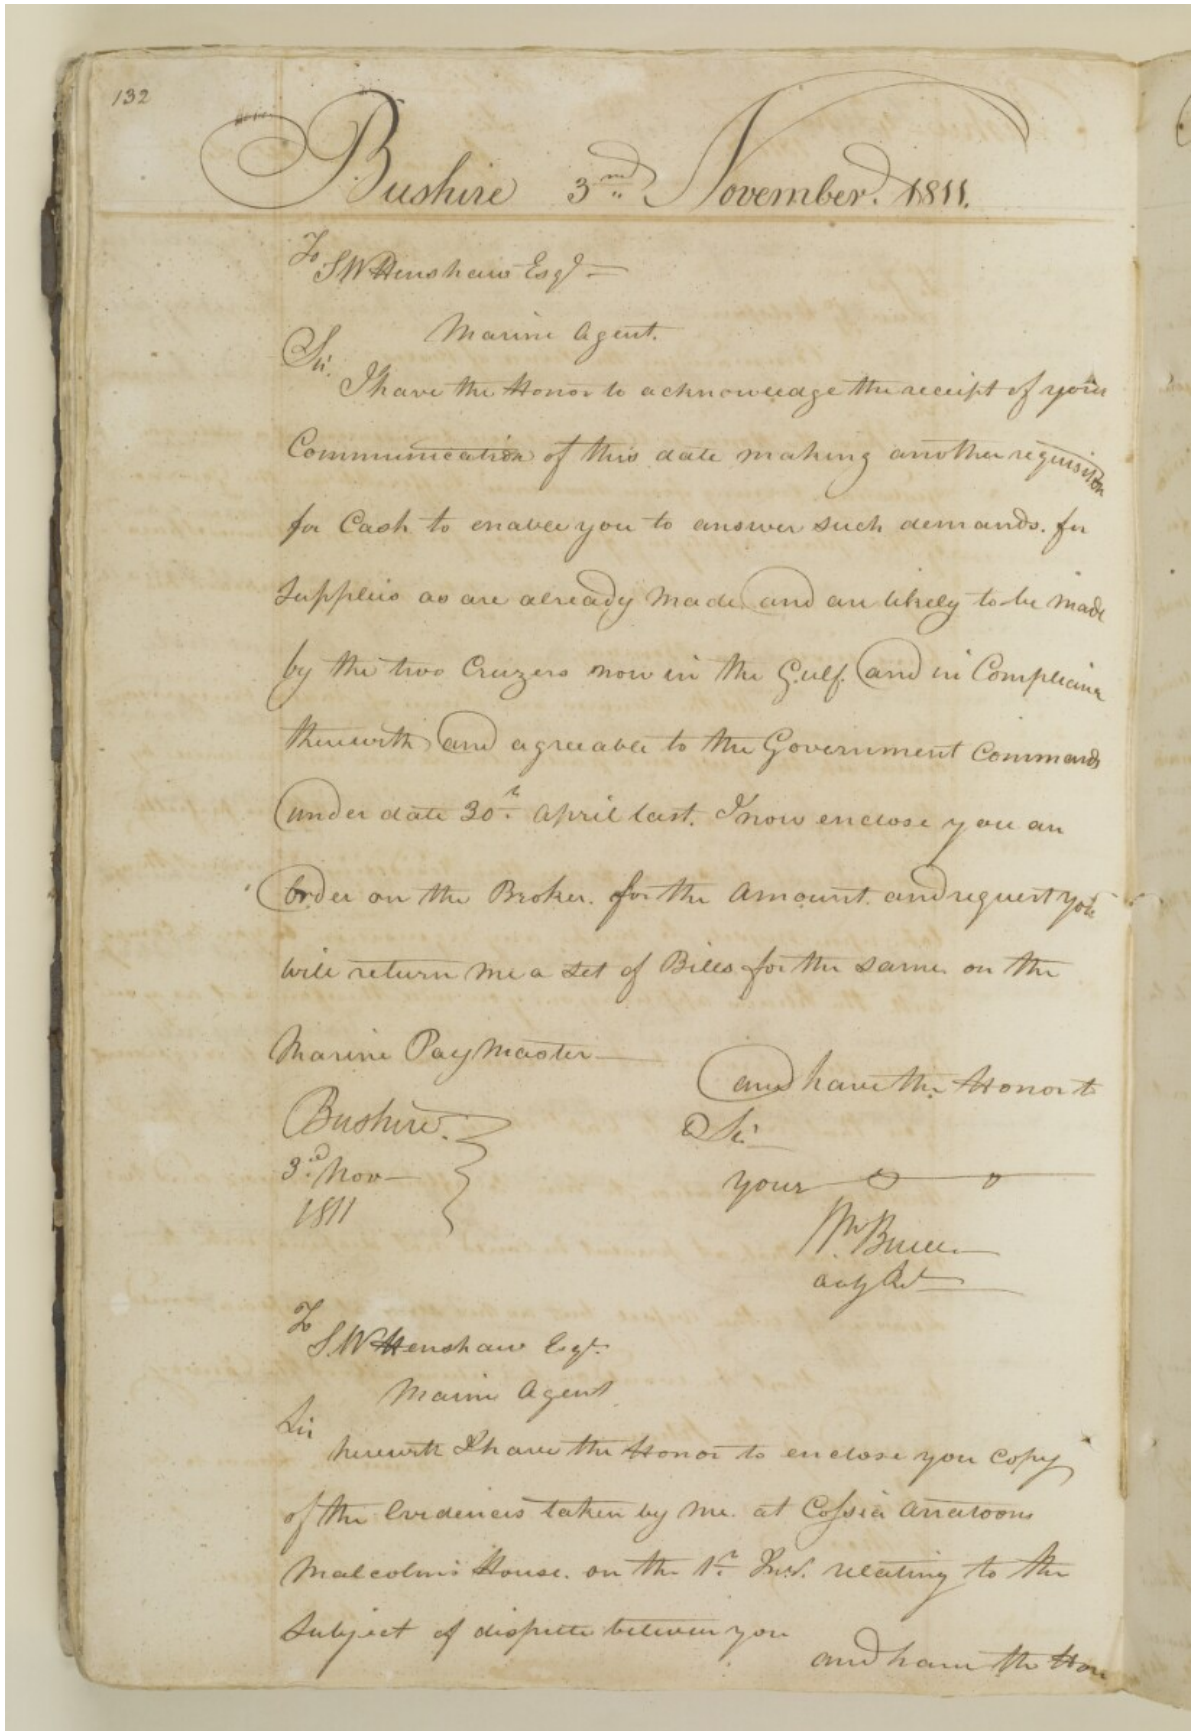 132
Bushire 3nd November. 1811.
To
S W Henshaw Esqr
Marine Agent.
Sir.
I have the Honor to acknowledge the receipt of your
Communication of this date making another requisition
for Cash to enable you to answer such demands. for
Supplies as are already made and are likely to be made
by the two Cruzers now in the Gulf. and in Compliance
therewith and agreeable to the Government Commands
under date 30th April last. I now enclose you an
order on the Broker. for the Amount. and request you
will return me a Set of Bills for the same on the
Marine Pay Master
and have the Honor to
Bushire.
Sir
3d Nov
your
1811
Wm Bruce
actg Rt
To
S. W Henshaw Esqr.
Marine Agent
Sir
herewith I have the Honor to enclose you Copy
of the Evidences taken by me. at Cossia Arratoons
Malcolms House. on the 1st Inst. relating to the
Subject of dispute between you
and have the Hon